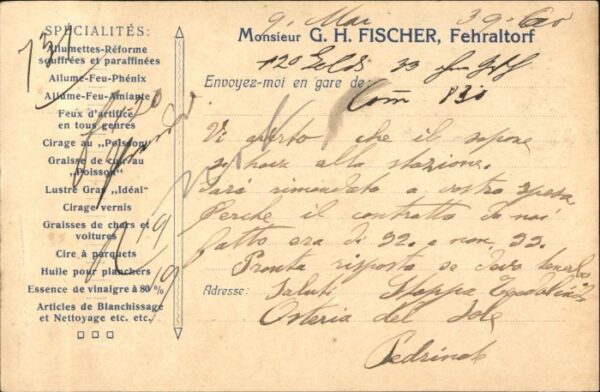 SPÉCIALITÉS:
Allumettes-Réforme
soufrées et paraffinées
Allume-Feu-Phénix
Allume-Feu-Amiante
Feux d'artifice
en tous genres
Cirage au „Poisson"
Graisse de cuir au
„Poisson"
Lustre Gras „Idéal"
Cirage vernis
Graisses de chars et
voitures
Cire à parquets
Huile pour planchers
Essence de vinaigre à 80 %
Articles de Blanchissage
et Nettoyage etc. etc.
9. Mai
Monsieur G. H. FISCHER, Fehraltorf
Envoyez-moi en gare de:
Vi che il sapone
si trova alla stazione.
Sarà rimandato a vostra spesa
Perche il contratto da noi
fatto era di 32. e non 33.
Pronta risposta se devo tenerlo
Adresse: Saluti Stoppa
Osteria del Sole
Pedrinate